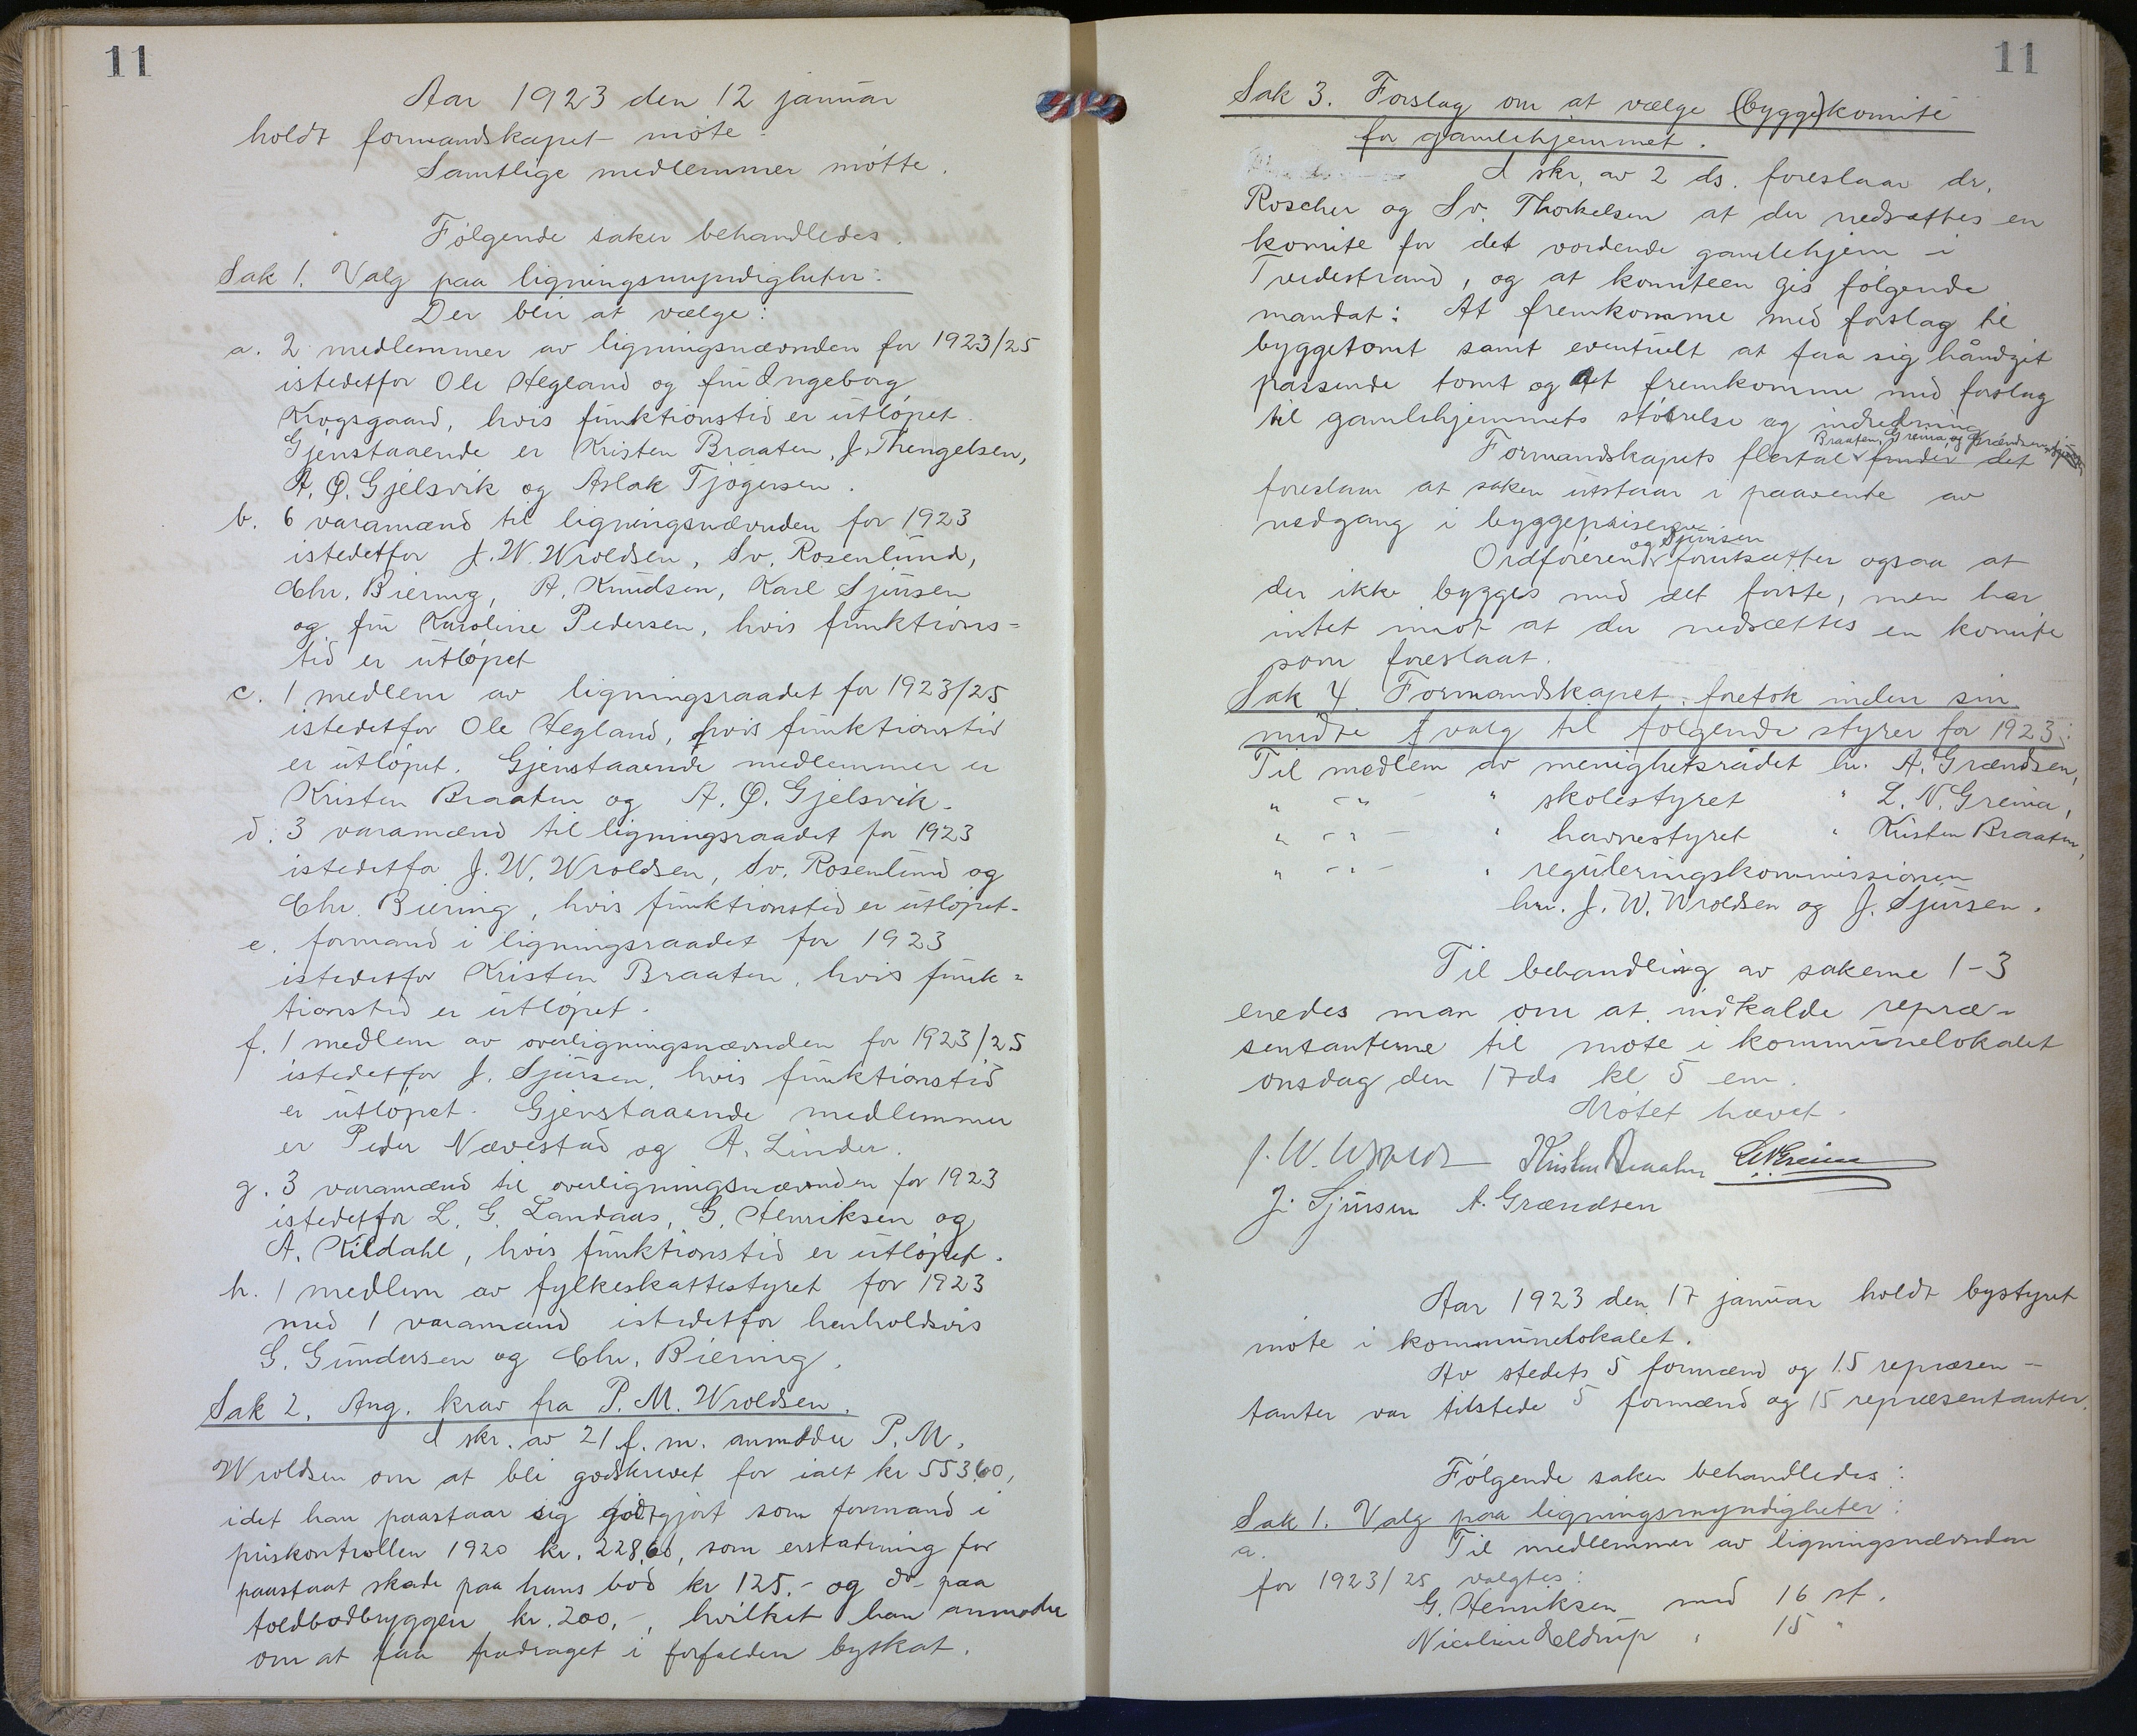 11
Aar 1923 den 12 januar
holdt formandskapet møte.
Samtlige medlemmer møtte.
Følgende saker behandledes.
Sak 1. Valg paa ligningsmyndigheter:
Der blir at vælge:
a. 2 medlemmer av ligningsnævnden for 1923/25
istedetfor Ole Hegland og fru Ingeborg
Krogsgaard, hvis funktionstid er utløpet.
Gjenstaaende er Kristen Braaten, J. Thengelsen,
A. Ø. Gjelsvik og Aslak Tjøgersen.
b. 6 varamænd til ligningsnævnden for 1923
istedetfor J. W. Wroldsen, Sv. Rosenlund,
Chr. Biering, A. Knudsen, Karl Sjursen
og fru Karoline Pedersen, hvis funktions-
tid er utløpet
c. 1 medlem av ligningsraadet for 1923/25
istedetfor Ole Hegland, hvis funktionstid
er utløpet. Gjenstaaende medlemmer er
Kristen Braaten og A. Ø. Gjelsvik.
d. 3 varamænd til ligningsraadet for 1923
istedetfor J. W. Wroldsen, Sv. Rosenlund og
Chr. Biering, hvis funktionstid er utløpet.
e. formand i ligningsraadet for 1923
istedetfor Kristen Braaten, hvis funk-
tionstid er utløpet.
f. 1 medlem av overligningsnævnden for 1923/25
istedetfor J. Sjursen, hvis funktionstid
er utløpet. Gjenstaaende medlemmer
er Peder Nævestad og A. Linder.
g. 3 varamænd til overligningsnævnden for 1923
istedetfor L. G. Landaas, G. Henriksen og
A. Kildahl, hvis funktionstid er utløpet.
h. 1 medlem av fylkeskattestyret for 1923
med 1 varamand istedetfor henholdsvis
G. Gundersen og Chr. Biering.
Sak 2. Ang. krav fra P. M. Wroldsen.
I skr. av 21 f. m. anmoder P. M.
Wroldsen om at bli godskrevet for ialt kr 553,60,
idet han paastaar sig godtgjort som formand i
priskontrollen 1920 kr. 228,60, som erstatning for
paastaat skade paa hans bod kr 125.- og do paa
toldbodbryggen kr. 200,-, hvilket han anmoder
om at faa fradraget i forfalden byskat.
11
Sak 3. Forslag om at vælge (bygge)komité
for gamlehjemmet.
I skr. av 2 ds. foreslaar dr.
Roscher og Sv. Thorkelsen at der nedsættes en
komite for det vordende gamlehjem i
Tvedestrand, og at komiteen gis følgende
mandat: At fremkomme med forslag til
byggetomt samt eventuelt at faa sig håndgit
passende tomt og at fremkomme med forslag
til gamlehjemmets størrelse og indredning
Braaten, Greina, og Grændsen
Formandskapets flertal finder det
foreslaar at saken utstaar i paavente av
nedgang i byggepriserne
og Sjursen
Ordføreren forutsætter ogsaa at
der ikke bygges med det første, men har
intet imot at der nedsættes en komite
som foreslaat.
Sak 4. Formandskapet foretok inden sin
midte valg til følgende styrer for 1923:
Til medlem av menighetsrådet hr. A. Grændsen,
" -"- " skolestyret " L. N. Greina,
" -"- " havnestyret " Kristen Braaten,
" -"- " reguleringskommissionen
hrr. J. W. Wroldsen og J. Sjursen.
Til behandling av sakerne 1-3
enedes man om at indkalde repræ-
sentanterne til møte i kommunelokalet
onsdag den 17 ds kl 5 em.
Møtet hævet.
J. W. Wroldsen Kristen Braaten LNGreina
J. Sjursen A. Grændsen
Aar 1923 den 17 januar holdt bystyret
møte i kommunelokalet.
Av stedets 5 formænd og 15 repræsen-
tanter var tilstede 5 formænd og 15 repræsentanter.
Følgende saker behandledes:
Sak 1. Valg paa ligningsmyndigheter:
a. Til medlemmer av ligningsnævnden
for 1923/25 valgtes:
G. Henriksen med 16 st.
Nicoline Feldrup " 15 "